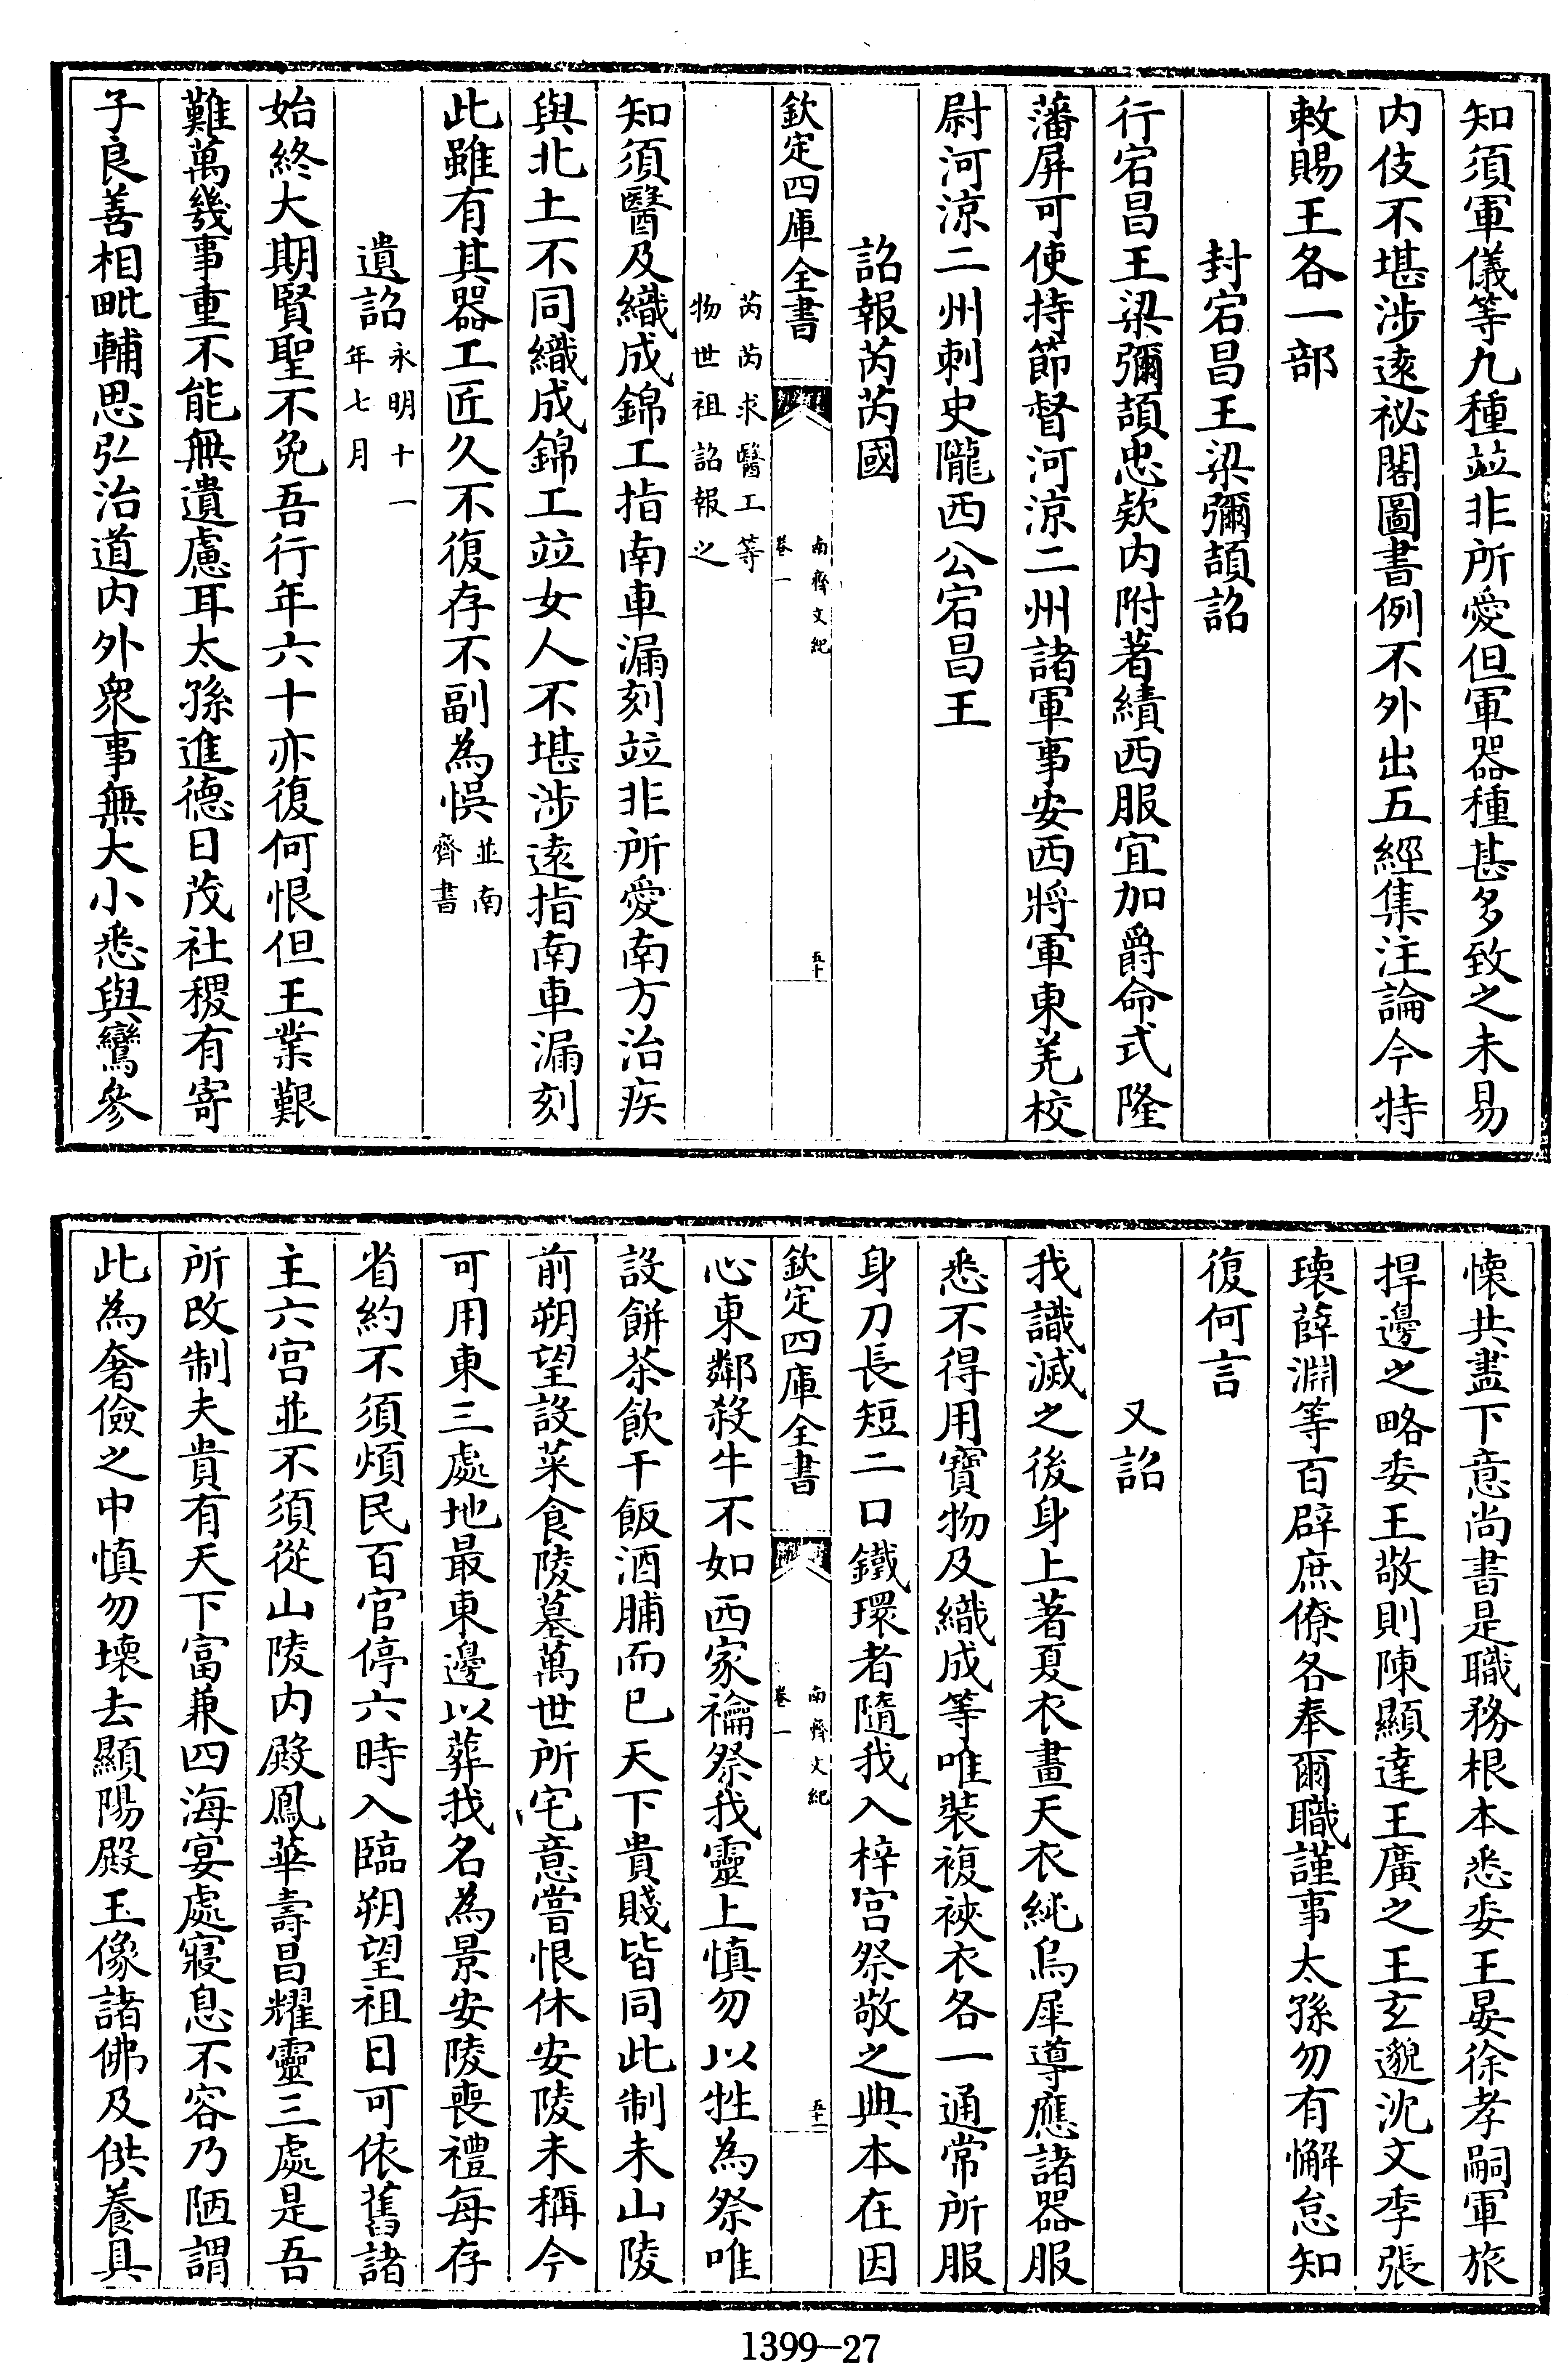 知須軍儀等九種竝非所愛但軍器種甚多致之未易
内伎不堪涉遠祕閣圖書例不外出五經集注論今特
敕賜王各一部
封宕昌王梁彌頡詔
行宕昌王梁彌頡忠款内附著績西服宜加爵命式隆
藩屏可使持節督河涼二州諸軍事安西將軍東羌校
尉河涼二州刺史隴西公宕昌王
詔報芮芮國
欽定四庫全書
南齊文紀
卷一
五十
芮芮求醫工等
物世祖詔報之
知須醫及織成錦工指南車漏刻竝非所愛南方治疾
與北土不同織成錦工竝女人不堪涉遠指南車漏刻
此雖有其器工匠久不復存不副為悮並南齊書
遺詔永明十一年七月
始終大期賢聖不免吾行年六十亦復何恨但王業艱
難萬幾事重不能無遺慮耳太孫進德日茂社稷有寄
子良善相毗輔思弘治道内外衆事無大小悉與鸞參
懐共盡下意尚書是職務根本悉委王晏徐孝嗣軍旅
捍邊之略委王敬則陳顯達王廣之王玄邈沈文季張
瓌薛淵等百辟庶僚各奉爾職謹事太孫勿有懈怠知
復何言
又詔
我識滅之後身上著夏衣畫天衣純烏犀導應諸器服
悉不得用寶物及織成等唯裝複裌衣各一通常所服
身刀長短二口鐵環者隨我入梓宮祭敬之典本在因
欽定四庫全書
南齊文紀
卷一
五十一
心東鄰殺牛不如西家禴祭我靈上慎勿以牲為祭唯
設餅茶飲干飯酒脯而已天下貴賤皆同此制未山陵
前朔望設菜食陵墓萬世所宅意嘗恨休安陵未稱今
可用東三處地最東邊以葬我名為景安陵喪禮每存
省約不須煩民百官停六時入臨朔望祖日可依舊諸
主六宮並不須從山陵内殿鳳華壽昌耀靈三處是吾
所改制夫貴有天下富兼四海宴處寢息不容乃陋謂
此為奢儉之中慎勿壞去顯陽殿玉像諸佛及供養具
1399-27